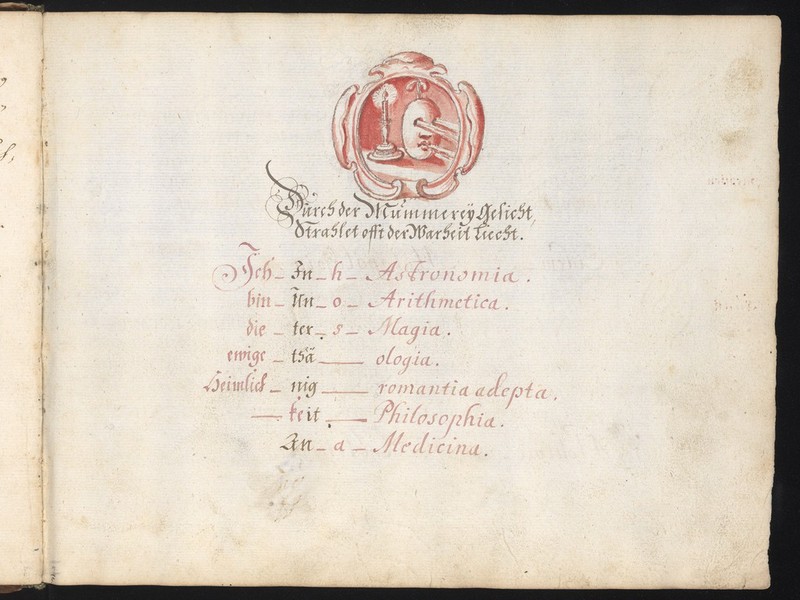 Durch der Mummerey Gesicht,
Strahlet offt der Warheit Liecht.
Ich – In – h – Astronomia.
bin – Un – o – Arithmetica.
die – ter – s – Magia.
ewige – thä — ologia.
Heimlich – nig — romantia adepta.
— keit — Philosophia.
An – a – Medicina.